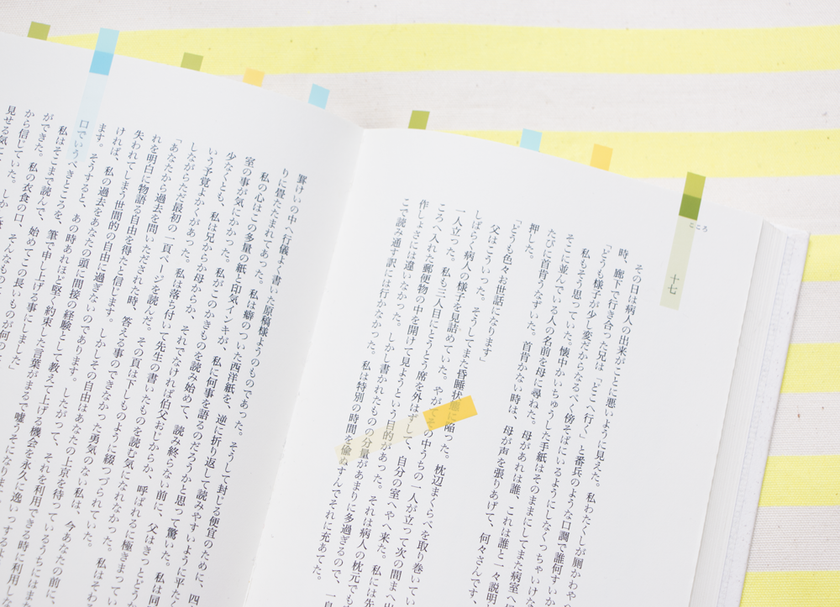 こころ
十七
その日は病人の出来がことに悪いように見えた。私わたくしが厠かわや
時、廊下で行き合った兄は「どこへ行く」と番兵のような口調で誰何すいか
「どうも様子が少し変だからなるべく傍そばにいるようにしなくっちゃいけな
私もそう思っていた。懐中かいちゅうした手紙はそのままにしてまた病室へ
そこに並んでいる人の名前を母に尋ねた。母があれは誰、これは誰と一々説明
たびに首肯うなずいた。首肯かない時は、母が声を張りあげて、何々さんです、
押した。
「どうも色々お世話になります」
父はこういった。そうしてまた昏睡状態に陥った。枕辺まくらべを取り巻いてい
しばらく病人の様子を見詰めていた。やがてその中うちの一人が立って次の間まへ出
一人立った。私も三人目にとうとう席を外はずして、自分の室へやへ来た。私には先
ころへ入れた郵便物の中を開けて見ようという目的があった。それは病人の枕元でも
作しょさには違いなかった。しかし書かれたものの分量があまりに多過ぎるので、一息
こで読み通す訳には行かなかった。私は特別の時間を偸ぬすんでそれに充あてた。
りに畳たたまれてあった。
私の心はこの多量の紙と印気インキが、私に何事を語るのだろうかと思って驚いた。
室の事が気にかかった。私がこのかきものを読み始めて、読み終らない前に、父は
少なくとも、私は兄からか母からか、それでなければ伯父おじからか、呼ばれるに極きまってい
いう予覚よかくがあった。私は落ち付いて先生の書いたものを読む気になれなかった。
しながらただ最初の一頁ページを読んだ。その頁は下しものように綴つづられていた。
「あなたから過去を問いただされた時、答える事のできなかった勇気のない私は、今あなたの前に、
れを明白に物語る自由を得たと信じます。しかしその自由はあなたの上京を待っているうちには
失われてしまう世間的の自由に過ぎないのであります。したがって、それを利用できる時に利用し
ければ、私の過去をあなたの頭に間接の経験として教えて上げる機会を永久に逸いっするよ
ます。そうすると、あの時あれほど堅く約束した言葉がまるで嘘うそになります
口でいうべきところを、筆で申し上げる事にしました」
私はそこまで読んで、始めてこの長いものが何の
ができた。私の衣食の口、そんなもの
から信じていた。しかし
見せる気に